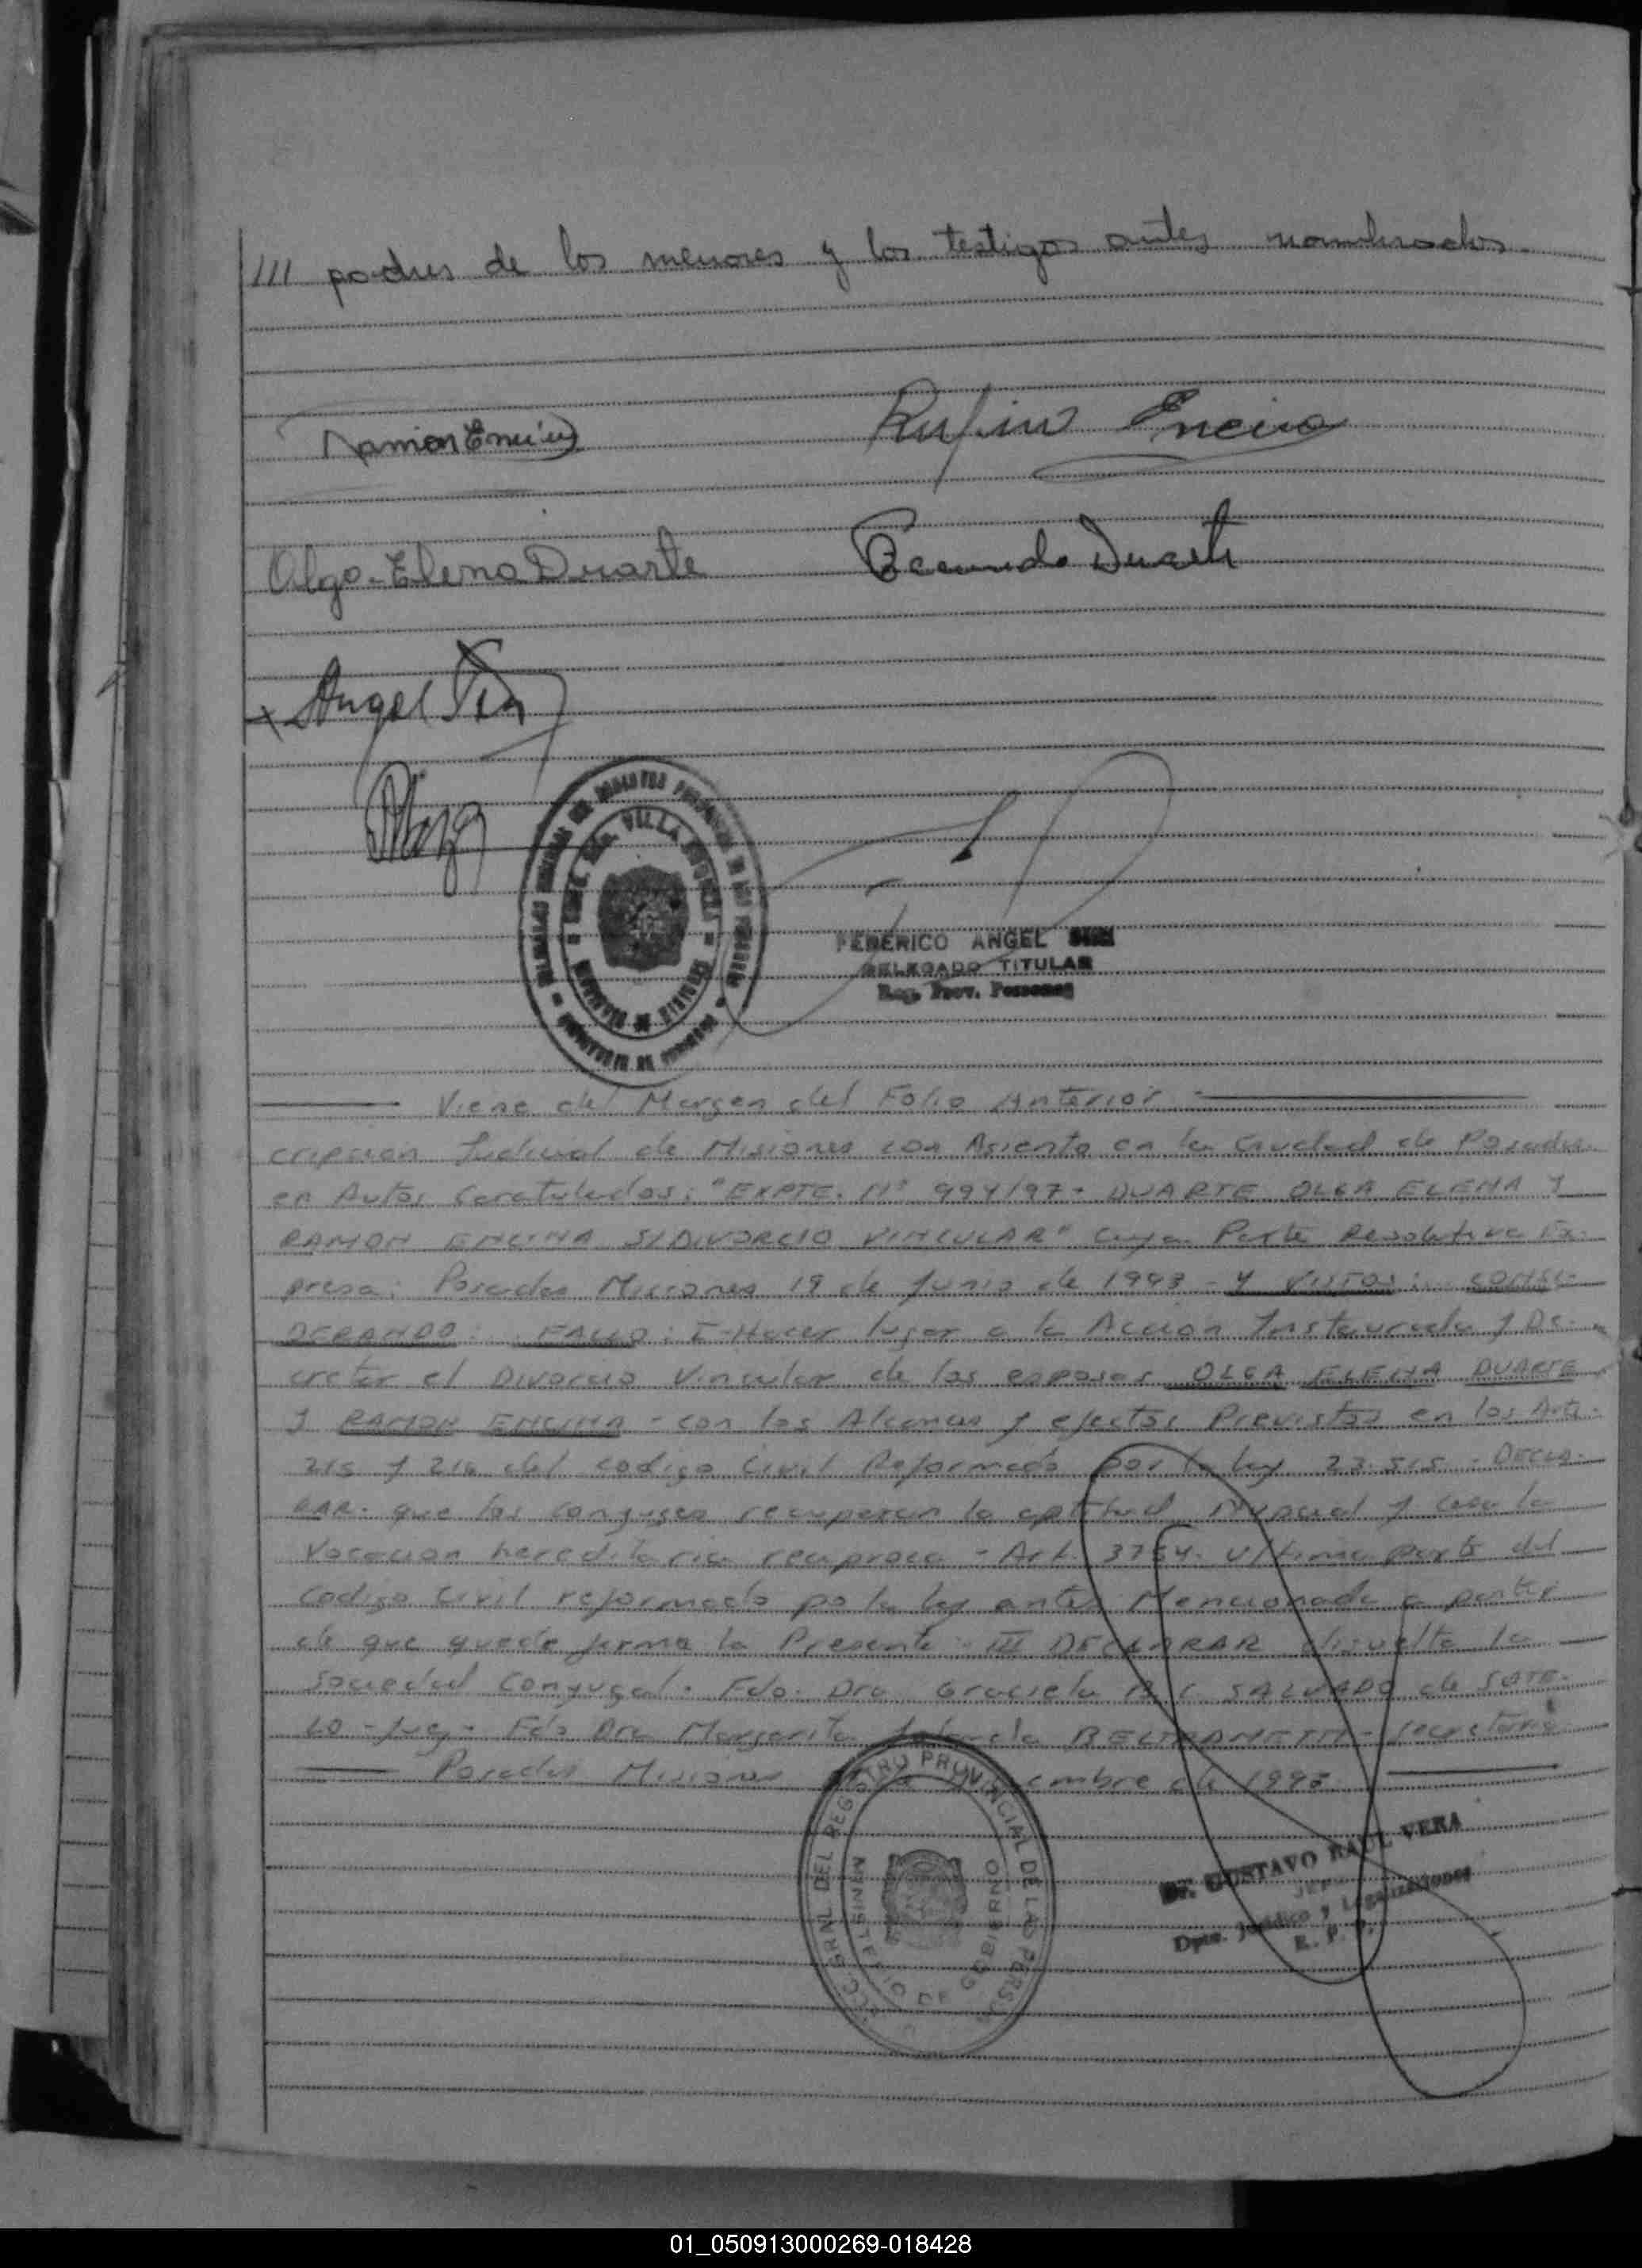 /// padres de los menores y los testigos antes nombrados.
Ramon Encina
Rufino Encina
Olga Elena Duarte
Facundo Duarte
Angel
VILLA
FEDERICO ANGEL
DELEGADO TITULAR
Reg. Prov. Personas
Viene del Margen del Folio Anterior
cripcion Judicial de Misiones con Asiento en la Ciudad de Posadas
en Autos Caratulados: "EXPTE. Nº 994/97- DUARTE OLGA ELENA Y
RAMON ENCINA S/DIVORCIO VINCULAR" Cuya Parte Resolutiva Ex-
presa: Posadas Misiones 19 de Junio de 1998 - Y VISTOS: CONSI-
DERANDO: FALLO: I-Hacer lugar a la Accion Instaurada y De-
cretar el Divorcio Vincular de los esposos OLGA ELENA DUARTE
Y RAMON ENCINA - con los Alcances y efectos Previstos en los Arts.
215 y 216 del codigo Civil Reformado por la ley 23.515 - DECLA-
RAR. que los conyuges recuperan la aptitud Nupcial y cesa la
Vocacion hereditaria reciproca - Art. 3754. Ultima parte del
Codigo Civil reformado po la ley antes Mencionada a partir
de que quede firme la Presente - III DECLARAR disuelta la
Sociedad Conyugal. Fdo. Dra Graciela SALVADO de SOTE-
LO - Juez - Fdo Dra Margarita BELTRAMETTI - Secretaria
Posadas Misiones de 199
REGISTRO PROVINCIAL DE LAS PERS.
MINISTERIO DE GOBIERNO
Dr. GUSTAVO RAUL VERA
JEFE
Dpto. Jurídico y Legalizaciones
R. P. P.
01_050913000269-018428